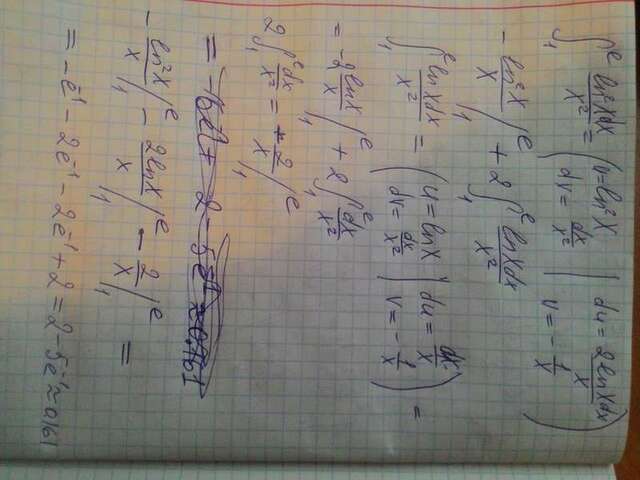 ∫₁ᵉ ln²xdx/x² = (u=ln²x | du = 2lnxdx/x
dv = dx/x² | v = -1/x)
-ln²x/x |₁ᵉ + 2∫₁ᵉ lnxdx/x²
∫₁ᵉ lnxdx/x² = (u = lnx | du = dx/x
dv = dx/x² | v = -1/x) =
= -2lnx/x |₁ᵉ + 2∫₁ᵉ dx/x²
2∫₁ᵉ dx/x² = -2/x |₁ᵉ
-ln²x/x |₁ᵉ - 2lnx/x |₁ᵉ - 2/x |₁ᵉ =
= -e⁻¹ - 2e⁻¹ - 2e⁻¹ + 2 = 2 - 5e⁻¹ ≈ 0,161